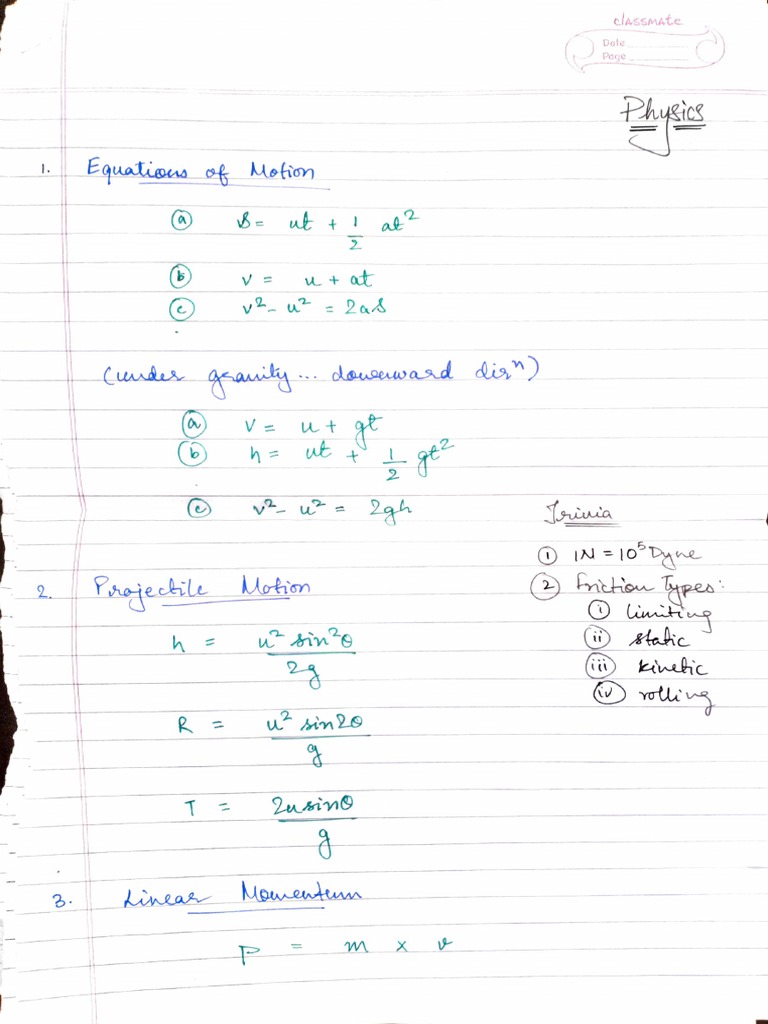 classmate
Date
Page
Physics
1. Equations of Motion
(a) S = ut + 1/2 at²
(b) v = u + at
(c) v² - u² = 2aS
(under gravity... downward dirⁿ)
(a) v = u + gt
(b) h = ut + 1/2 gt²
(c) v² - u² = 2gh
Trivia
(1) 1N = 10⁵ Dyne
(2) Friction Types:
(i) limiting
(ii) static
(iii) kinetic
(iv) rolling
2. Projectile Motion
h = u² sin²θ / 2g
R = u² sin2θ / g
T = 2u sinθ / g
3. Linear Momentum
P = m × v